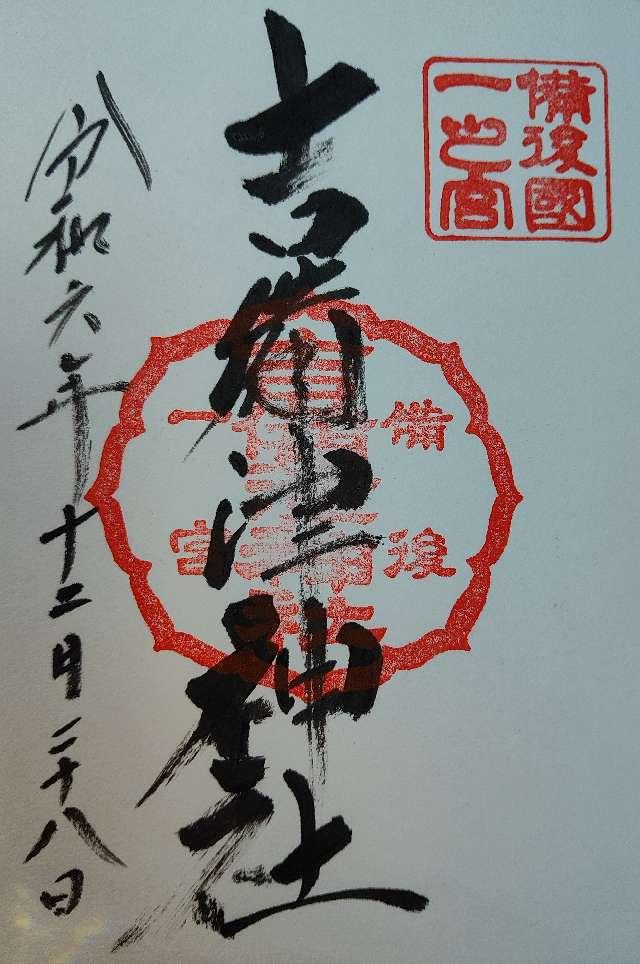 備後國
一之宮
備後
吉備津神社
一宮
令和六年十二月二十八日